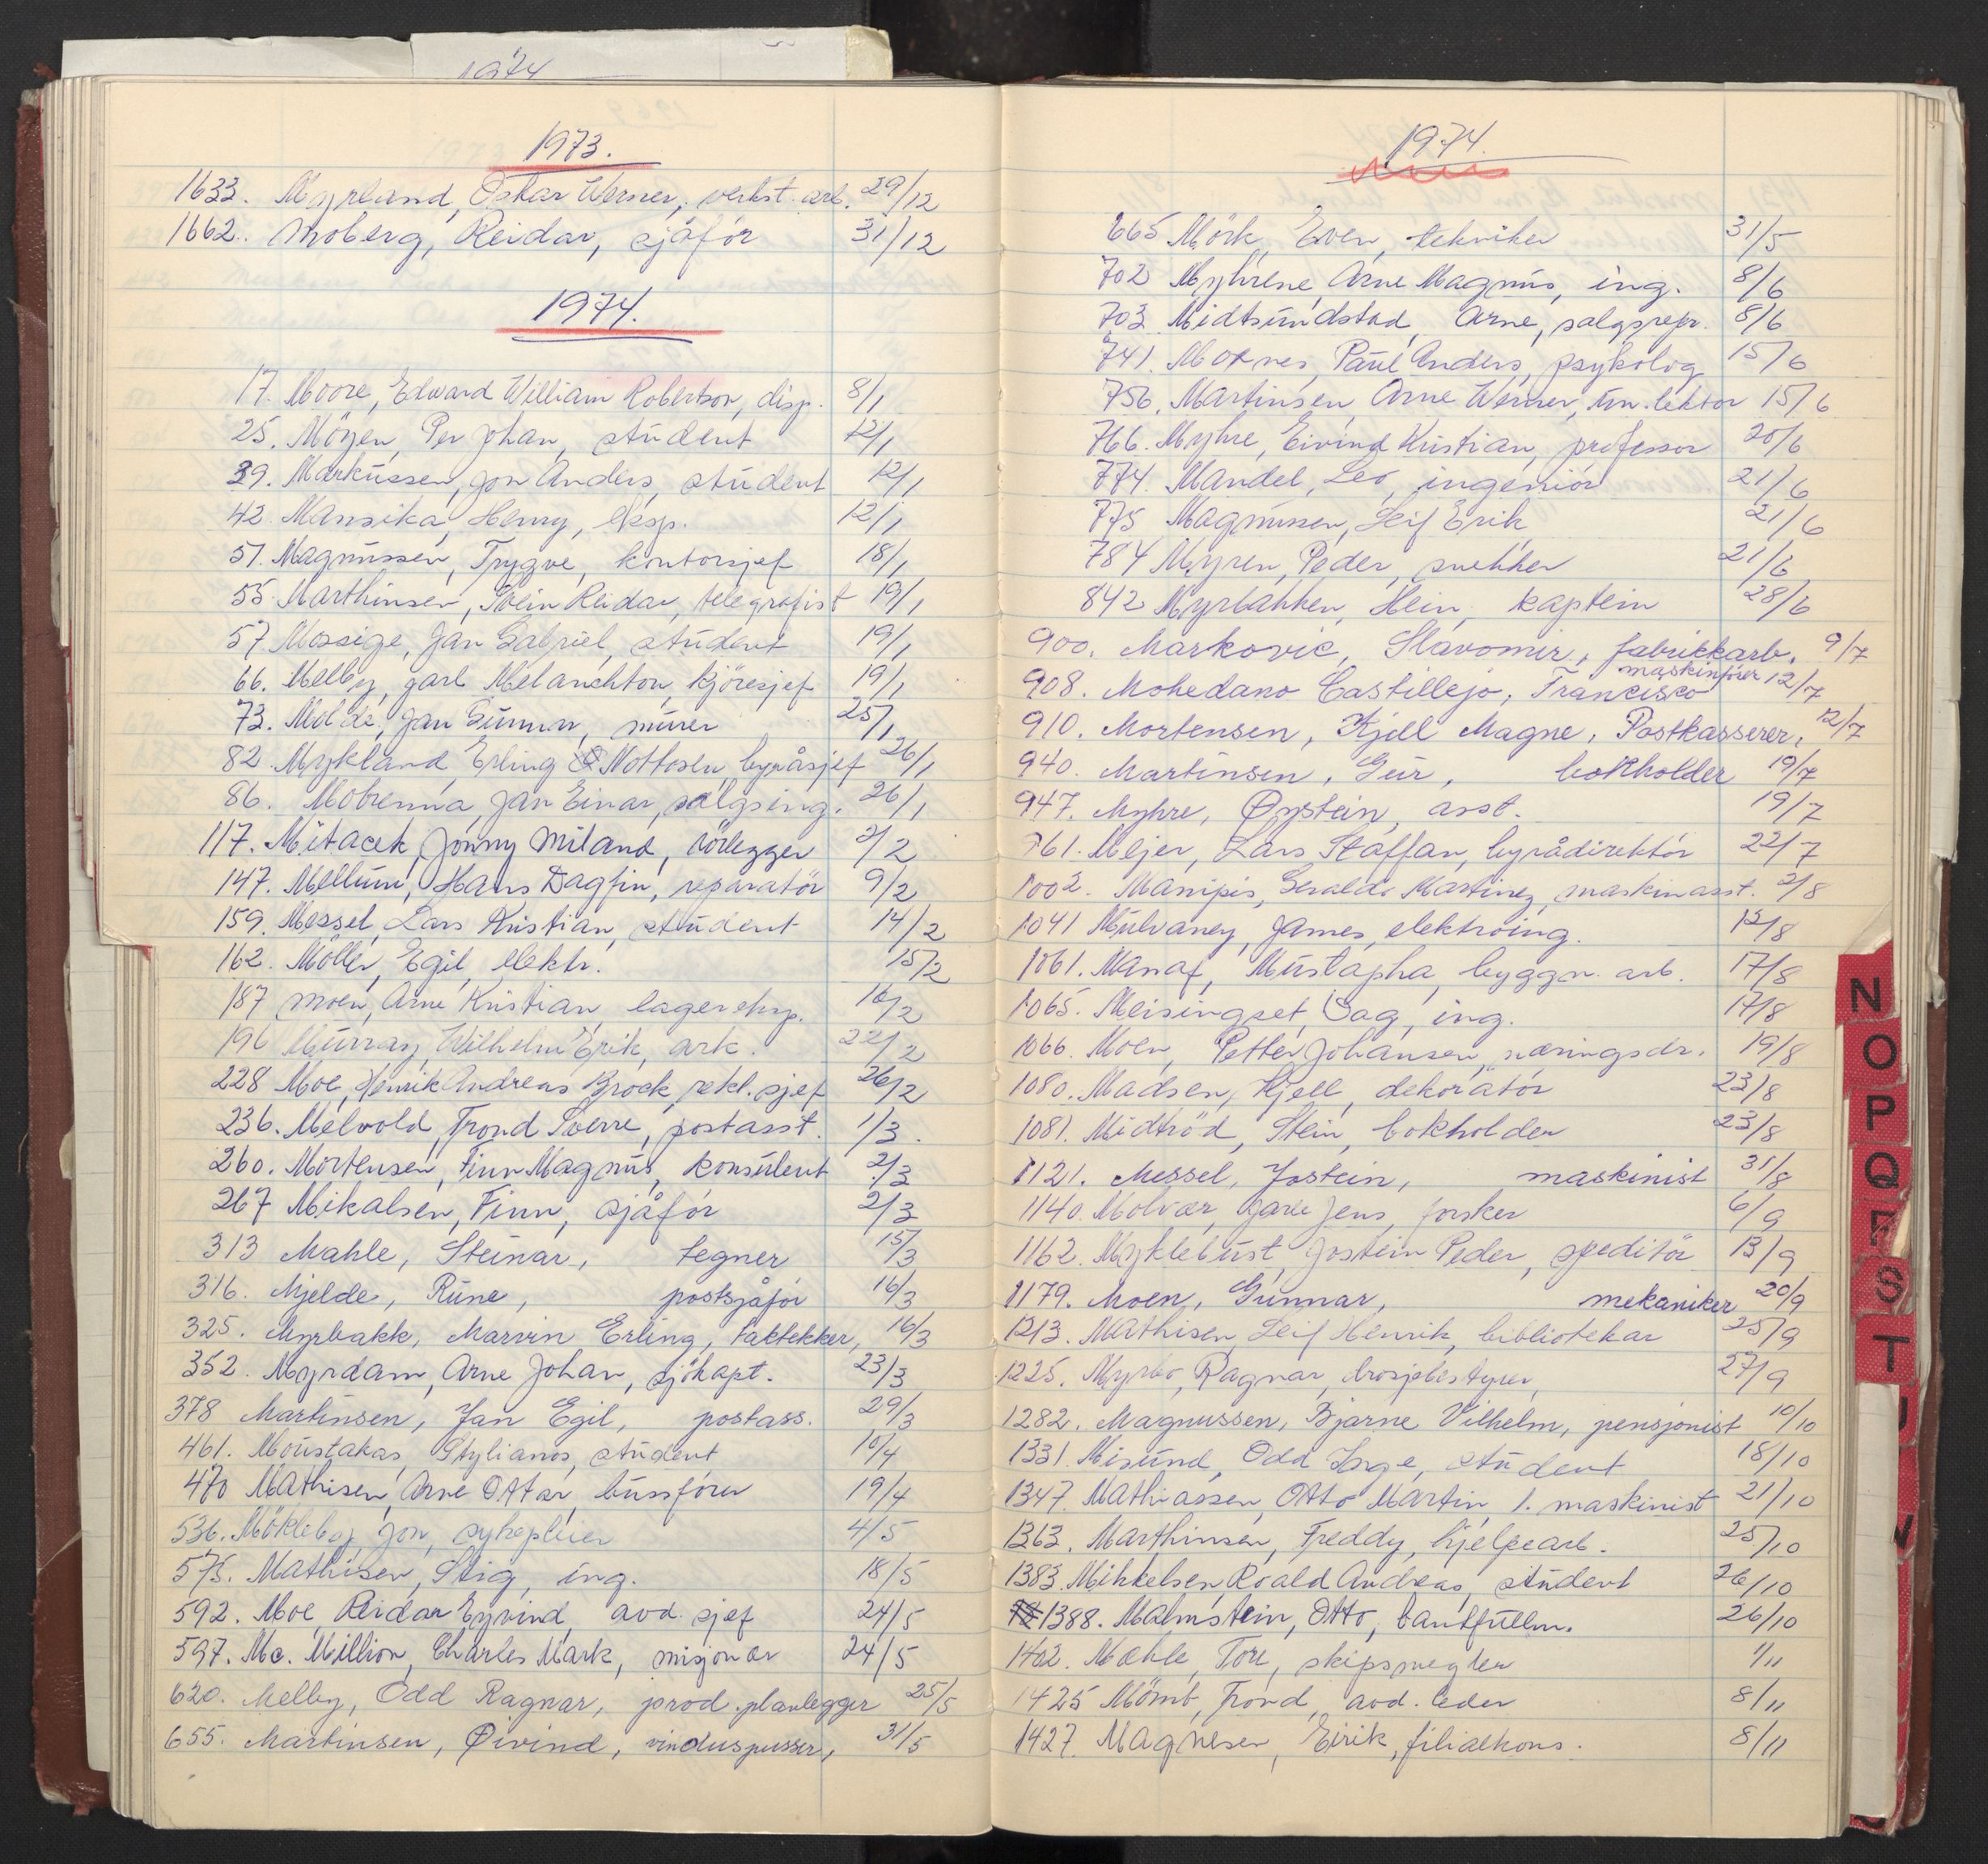 1974
1973.
1633. Myrland, Oskar Werner, verkst. arb. 29/12
1662. Moberg, Reidar, sjåfør 31/12
1974.
17. Moore, Edward William Robertson, disp. 8/1
25. Möyen, Per Johan, student 12/1
39. Markussen, Jon Anders, student 12/1
42. Mansika, Henry, eksp. 12/1
51. Magnussen, Trygve, kontorsjef 18/1
55. Marthinsen, Svein Reidar, telegrafist 19/1
57 Mossige, Jan Gabriel, student 19/1
66. Melby, Carl Melanchton, kjöresjef 19/1
73. Molde, Jan Gunnar, murer 25/1
82. Mykland, Erling Nottosen byråsjef 26/1
86. Mobrenna, Jan Einar, salgsing. 26/1
117. Mitacek, Jonny Miland, rörlegger 2/2
147. Mellum, Hans Dagfin, reparatör 9/2
159. Messel, Lars Kristian, student 14/2
162. Möller, Egil, elektr. 15/2
187 Moen, Arne Kristian lagereksp. 16/2
196 Murray, Wilhelm Erik, ark. 22/2
228 Moe, Henrik Andreas Brock, rekl. sjef 26/2
236. Melvold, Trond Sverre, postasst. 1/3.
260. Mortensen, Finn Magnus, konsulent 2/3
267 Mikalsen, Finn, sjåför 2/3
313 Mahle, Steinar, tegner 15/3
316. Mjelde, Rune, postsjåför 16/3
325. Myrbakk, Marvin Erling, taktekker, 16/3
352. Myrdam, Arne Johan, sjökapt. 23/3
378 Martinsen, Jan Egil, postass. 29/3
461. Moustakas, Stylianos, student 10/4
470 Mathisen, Arne Ottar, bussförer 19/4
536. Mökleby, Jon, sykepleier 4/5
575. Mathisen, Stig, ing. 18/5
592. Moe, Reidar Eyvind, avd. sjef 24/5
597. Mc. Million, Charles Mark, misjonær 24/5
620. Melby, Odd Ragnar, prod.planlegger 25/5
655. Martinsen, Øivind, vinduspusser, 31/5
1974.
665 Mörk, Even, tekniker 31/5
702 Myhrene, Arne Magnus, ing. 8/6
703 Midtsundstad, Arne, salgsrepr. 8/6
741. Moxnes, Paul Anders, psykolog 15/6
756. Martinsen, Arne Werner, un. lektor 15/6
766. Myhre, Eivind Kristian, professor 20/6
774. Mandel, Leo, ingeniör 21/6
775 Magnussen, Leif Erik 21/6
784 Myren, Peder, snekker 21/6
842 Myrbakken, Hein, kaptein 28/6
900. Markovic, Slavomir, fabrikkarb. 9/7
908. Mohedano Castillejo, Francisco maskinfører 12/7
910. Mortensen, Kjell Magne, Postkasserer, 12/7
940. Martinsen, Geir, bokholder 19/7
947. Myhre, Øystein, asst. 19/7
961. Mejer, Lars Staffan, byrådirektör 22/7
1002. Manipis, Geraldo Martinez, maskinasst. 2/8
1041 Mulvaney, James, elektroing. 12/8
1061. Manaf, Mustapha, byggn. arb. 17/8
1065. Meisingset, Dag, ing. 17/8
1066. Moen, Petter Johansen, næringsdr. 19/8
1080. Madsen, Kjell, dekoratör 23/8
1081. Midtröd, Stein, bokholder 23/8
1121. Messel, Jostein, maskinist 31/8
1140. Molvær, Jens, forsker 6/9
1162. Myklebust, Jostein Peder, speditör 13/9
1179. Moen, Gunnar, mekaniker 20/9
1213. Mathisen, Leif Henrik, bibliotekar 25/9
1225. Myrbo, Ragnar, drosjebestyrer, 27/9
1282. Magnussen, Bjarne Vilhelm, pensjonist 10/10
1331. Misund, Odd Inge, student 18/10
1347. Mathiassen, Otto Martin, 1. maskinist 21/10
1363. Marthinsen, Freddy, hjelpearb. 25/10
1383. Mikkelsen, Roald Andreas, student 26/10
1388. Malmstein, Otto, bankfullm. 26/10
1402. Mæhle, Tore, skipsmegler 1/11
1425 Mömb, Trond, avd. leder 8/11
1427. Magnesen, Eirik, filialkons. 8/11
N
O
P
Q
R
S
T
U
V